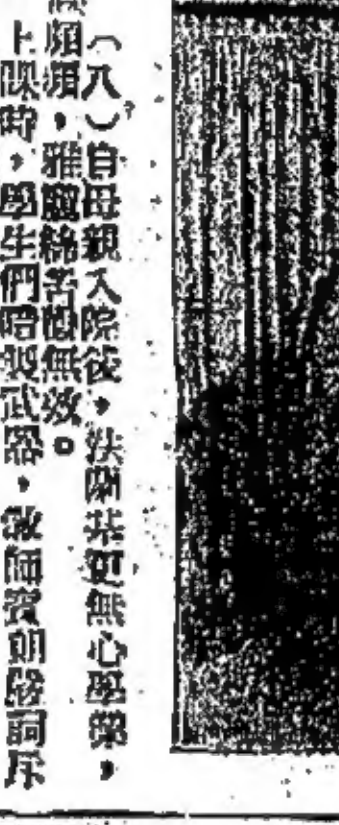 （八）自母親入院後，法蘭茲更無心學業，
頻頻，雅麗絲苦勸無效。
上課時，學生們暗製武器，教師賓朗嚴詞斥